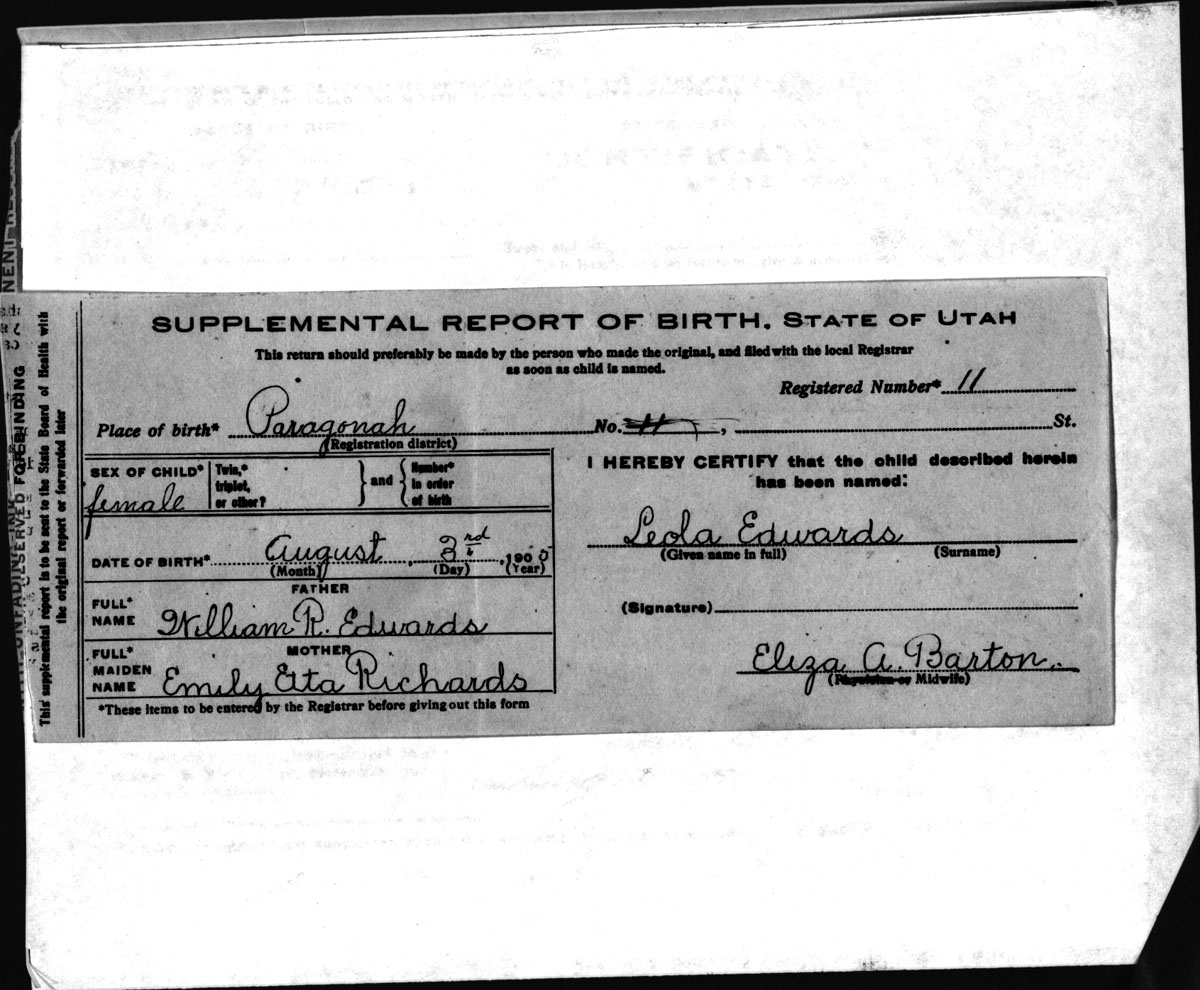 SUPPLEMENTAL REPORT OF BIRTH. STATE OF UTAH
This return should preferably be made by the person who made the original, and filed with the local Registrar
as soon as child is named.
Registered Number* 11
Place of birth* Paragonah No. 11, St.
(Registration district)
SEX OF CHILD* female
Twin,* triplet, or other? } and { Number* in order of birth
DATE OF BIRTH* August 3rd, 190
(Month) (Day) (Year)
FATHER
FULL* NAME William R. Edwards
MOTHER
FULL* MAIDEN NAME Emily Etta Richards
*These items to be entered by the Registrar before giving out this form
I HEREBY CERTIFY that the child described herein
has been named:
Leola Edwards
(Given name in full) (Surname)
(Signature)
Eliza A. Barton.
(Physician or Midwife)
This supplemental report is to be sent to the State Board of Health with
the original report or forwarded later
RESERVED FOR BINDING